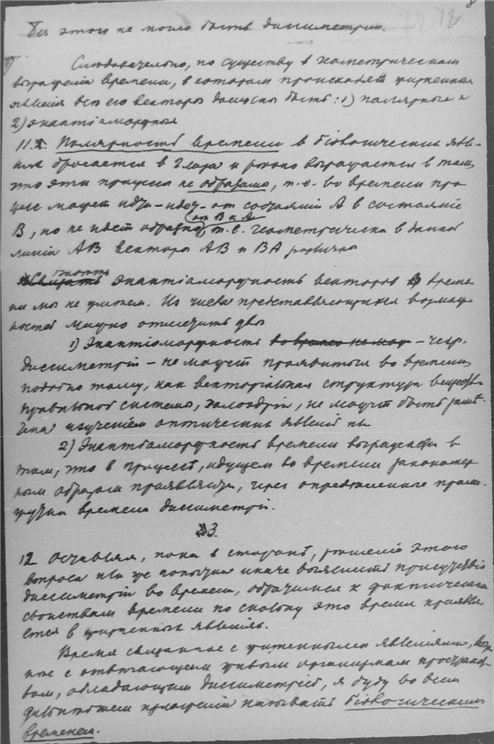 Без этого не может быть диссиметрии.
Следовательно, по существу в геометрическом
выражении времени, в котором происходят жизненные
явления все его векторы должны быть: 1) полярные и
2) энантіаморфны
11. Полярность времени в біологических явле-
ниях бросается в глаза и резко выражается в том,
что эти процессы не обратимы, т.е. во времени про-
цесс может идти от состояния А в состояние
В, но не идет обратно от В к А т.е. геометрически в данной
линии АВ вектора АВ и ВА различны
энантіаморфность векторов време-
ни мы не умеем. Из числа представляющихся возмож-
ностей можно отметить две
1) Энантіаморфность во времени не мож - 
диссиметрій - не может проявиться во времени,
подобно тому, как векторіальная структура веществ
правильной системы, не может быть заме-
чена изучением оптических явлений
2) Энантіаморфность времени выражается в
том, что в процессе, идущем во времени закономер-
ным образом проявляется, через определенные проме-
жутки времени диссиметрія.
12 Оставляя, пока в стороне, решение этого
вопроса иначе выяснить присутствие
диссиметрій во времени, обратимся к фактическим
свойствам времени поскольку это время проявля-
ется в жизненных явлениях.
Время связанное с жизненными явлениями,
с отвечающим живым организмам пространст-
вом, обладающим диссиметрией, я буду во всем
дальнейшем называть біологическим
временем.